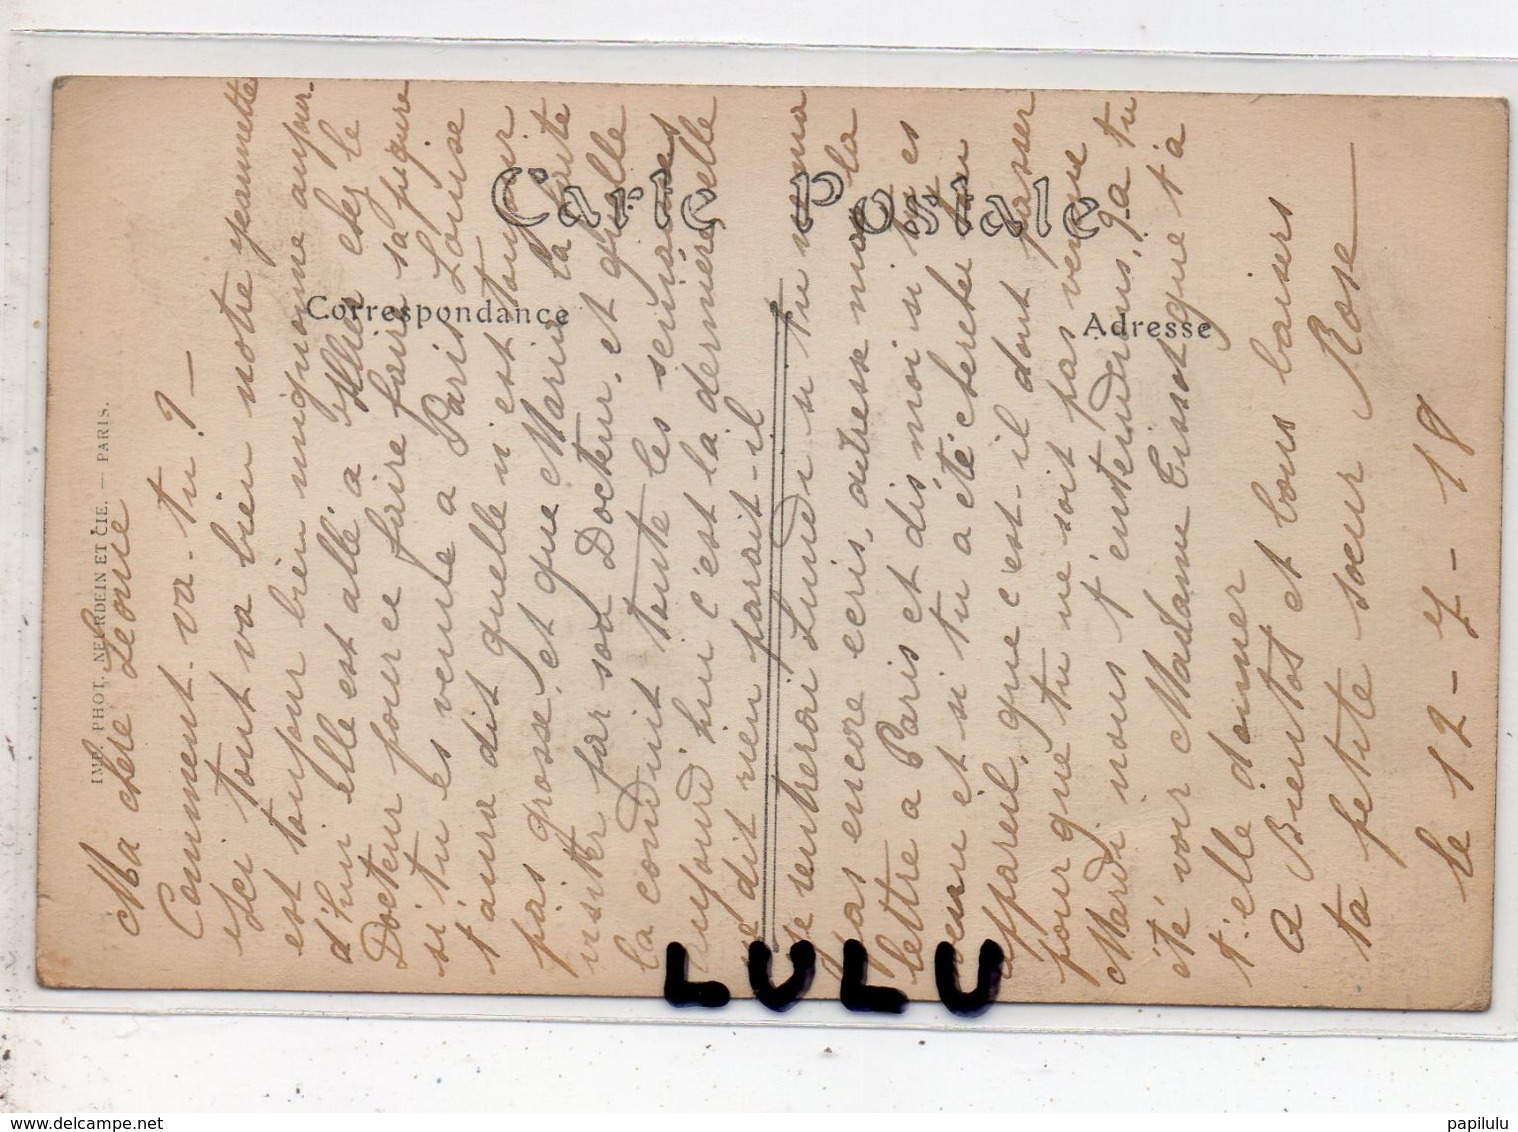 Carte Postale
Correspondance
Adresse
IMP. PHOT. NEURDEIN ET CIE. — PARIS.
Ma chère Léonie
Comment va-tu ? —
Ici tout va bien notre Jeannette
est toujour bien mignonne aujour-
d'hui elle est allé a chez le
Docteur pour ce faire faire sa piqure
si tu es venue a Paris Louise
t'aura dit quelle n'est toujour
pas grosse, et que Marie la faite
visiter par son Docteur, et quelle
la conduit toute les semaines
aujourd'hui c'est la dernière elle
ne dit rien parait-il
je rentrerai Lundi si tu
pas encore ecris, adresse moi la
lettre a Paris et dis, moi si tu es
venu et si tu a été cherché ton
appareil, que c'est-il dont passer
pour que tu ne soit pas venue
Mardi nous t'entendions, ça tu
été voir Madame Tissot que t'a
t-elle donner
A Bientôt et bons baisers
ta petite soeur Rose —
le 12-7-18
LULU
papilulu